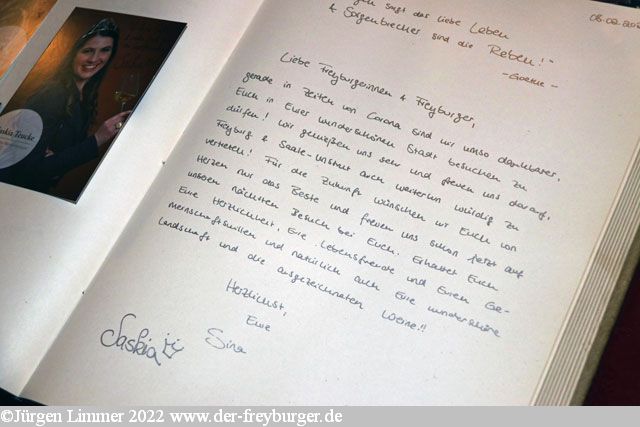 skia Teucke
sagt das liebe Leben
08.02.202
& Sorgenbrecher sind die Reben!"
- Goethe -
Liebe Freyburgerinnen & Freyburger,
gerade in Zeiten von Corona sind wir umso dankbarer,
Euch in Eurer wunderschönen Stadt besuchen zu
dürfen! Wir genießen uns sehr und freuen uns darauf,
Freyburg & Saale-Unstrut auch weiterhin würdig zu
vertreten! Für die Zukunft wünschen wir Euch von
Herzen nur das Beste und freuen uns schon jetzt auf
unseren nächsten Besuch bei Euch. Erhaltet Euch
Eure Herzlichkeit, Eure Lebensfreude und Euren Ge-
meinschaftswillen und natürlich auch Eure wunderschöne
Landschaft und die ausgezeichneten Weine!!
Herzlichst,
Eure
Saskia Sina
©Jürgen Limmer 2022 www.der-freyburger.de